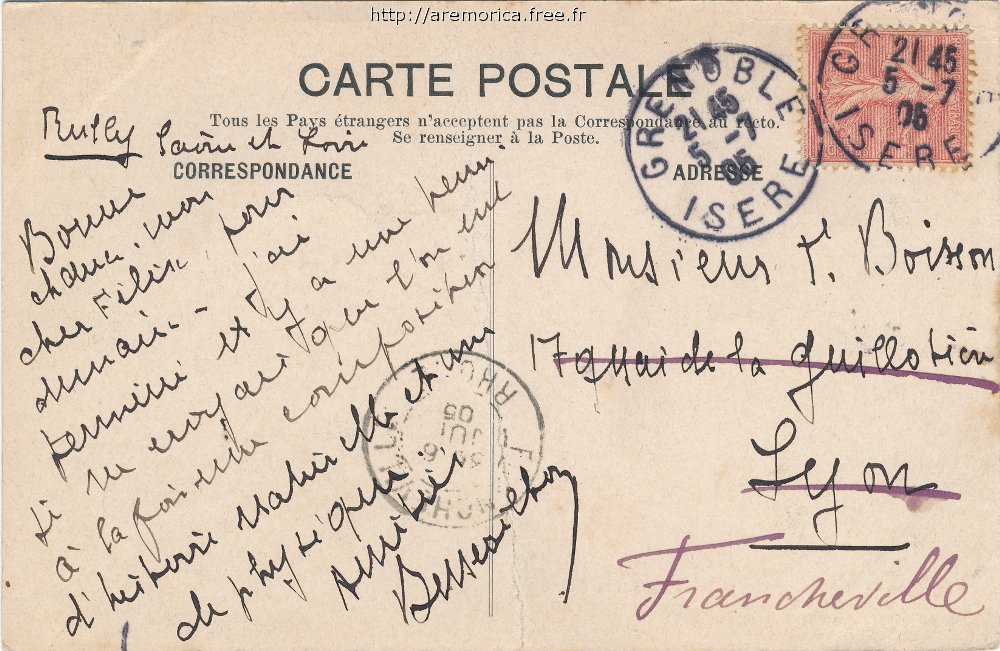 http://aremorica.free.fr
CARTE POSTALE
Tous les Pays étrangers n'acceptent pas la Correspondance au recto.
Se renseigner à la Poste.
CORRESPONDANCE
ADRESSE
Rully Saône et Loire
Bonne
chance, mon
cher Félix, pour
demain. J'ai
terminé et il y a une demi
ne croyais que l'on eut
à la fois une composition
d'histoire naturelle et une
de physique.
Amitiés
Monsieur F. Boisson
17 quai de la Guillotière
Lyon
Francheville
GRENOBLE
21 45
5 -7
05
ISERE
GRE
21 45
5 -7
05
ISERE
RHONE
JUIL
05